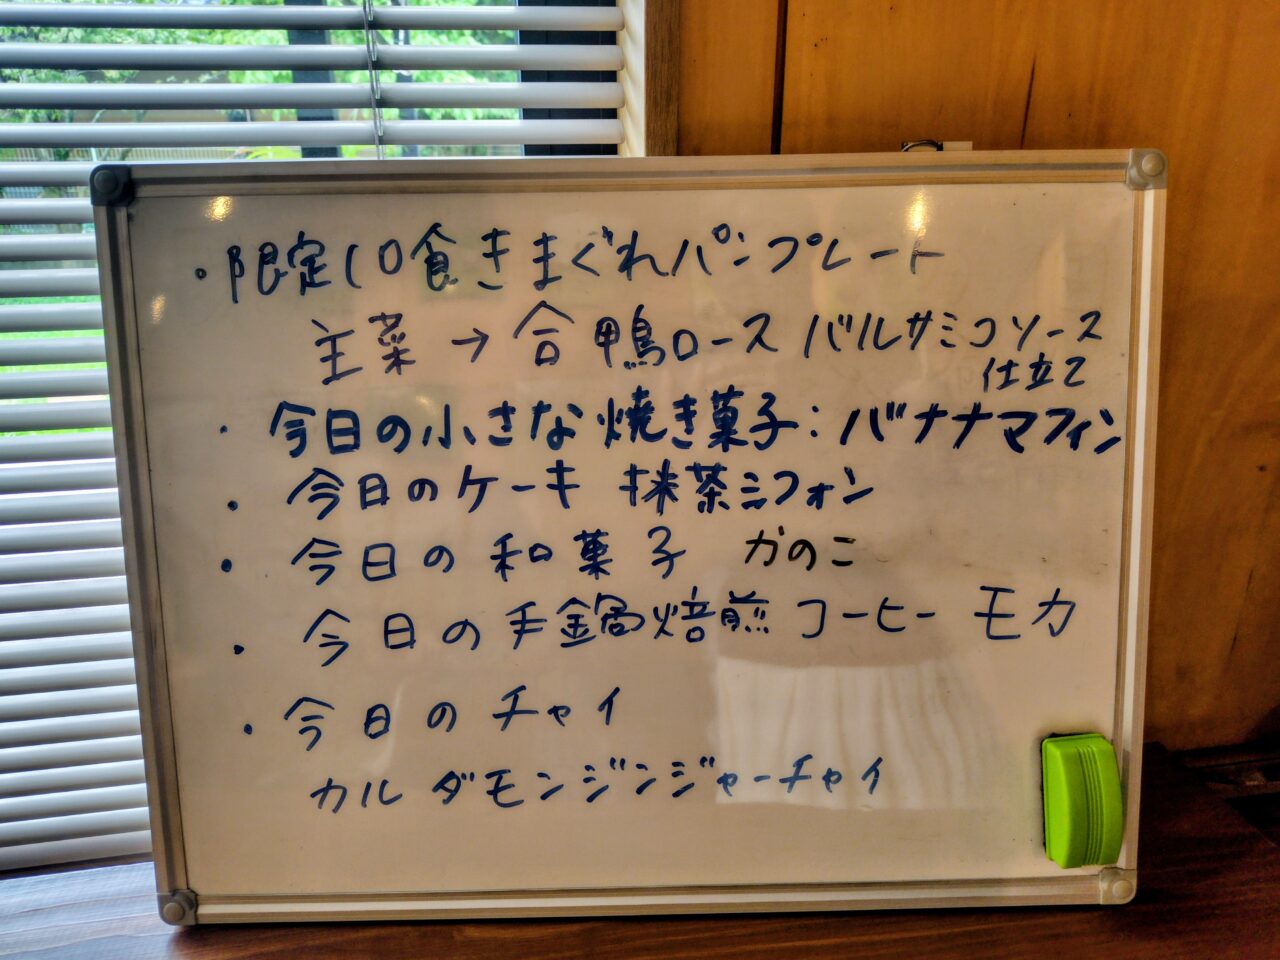 ・限定10食きまぐれパンプレート
主菜→合鴨ロースバルサミコソース
仕立て
・今日の小さな焼き菓子:バナナマフィン
・今日のケーキ 抹茶シフォン
・今日の和菓子 かのこ
・今日の手鍋焙煎コーヒー モカ
・今日のチャイ
カルダモンジンジャーチャイ